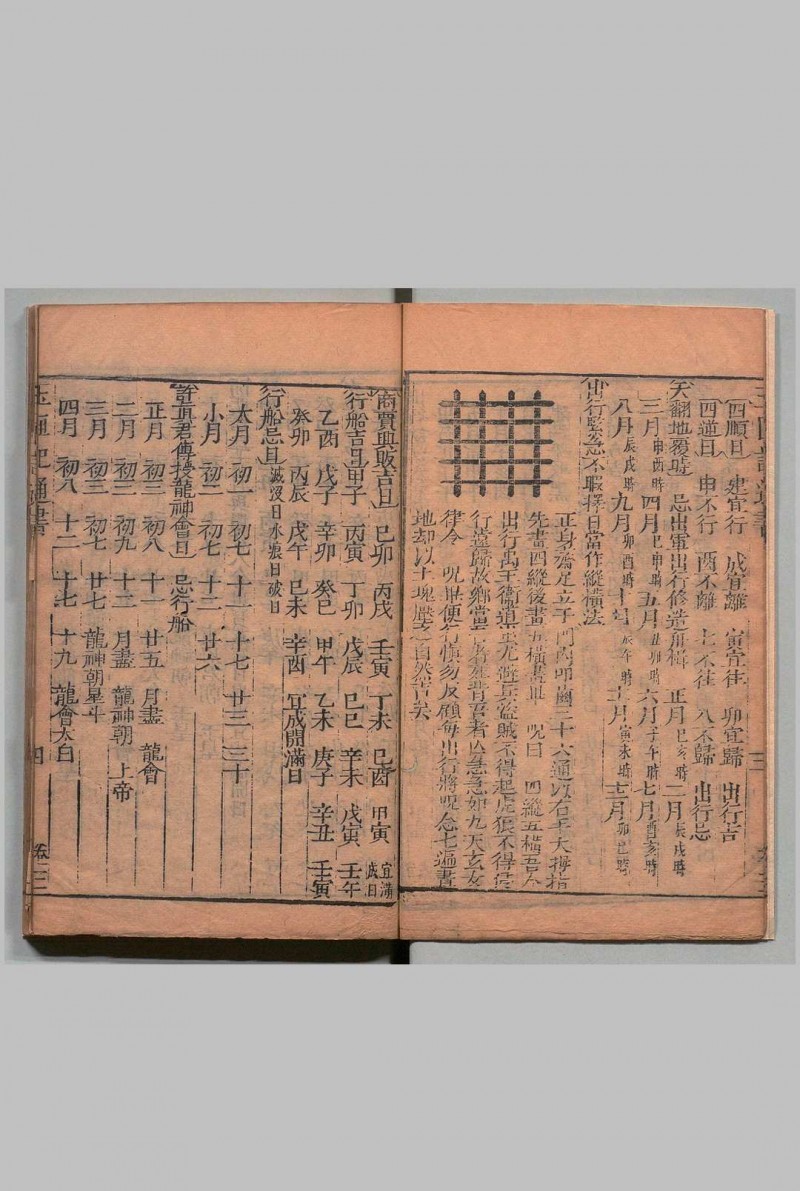 四順日 建宜行 成宜離 寅宜往 卯宜歸 出行吉
四逆日 申不行 酉不離 七不往 八不歸 出行忌
天翻地覆時 忌出軍出行修造 正月巳亥時 二月辰戌時
三月申酉時 四月巳申時 五月丑卯時 六月子午時 七月酉亥時
八月辰戌時 九月卯酉時 十月辰午時 十一月寅未時 十二月卯巳時
出行緊急不暇擇日當作縱橫法
正身齊足立于門內叩齒三十六通以右手大拇指
先畫四縱後畫五橫畫畢 呪曰 四縱五橫吾今
出行禹王衛道蚩尤避兵盜賊不得起虎狼不得侵
行遠歸故鄉當吾者死背吾者亡急急如九天玄女
律令 呪畢便行慎勿反顧每出行將呪念七遍畫
地却以土塊壓之自然吉矣
商賈興販吉日 己卯 丙戌 壬寅 丁未 己酉 甲寅 宜滿成日
行船吉日 甲子 丙寅 丁卯 戊辰 己巳 辛未 戊寅 壬午
乙酉 戊子 辛卯 癸巳 甲午 乙未 庚子 辛丑 壬寅
癸卯 丙辰 戊午 己未 辛酉 宜成開滿日
行船忌日 滅沒日水痕日破日
大月 初一 初七 十一 十七 廿三 三十
小月 初二 初七 十二 廿六
許真君傳授龍神會日 忌行船
正月 初三 初八 十一 廿五 月盡 龍會
二月 初三 初九 十二 月盡 龍神朝 上帝
三月 初三 初七 廿七 龍神朝星斗
四月 初八 十二 十七 十九 龍會太白
玉匣記通書 四 卷三